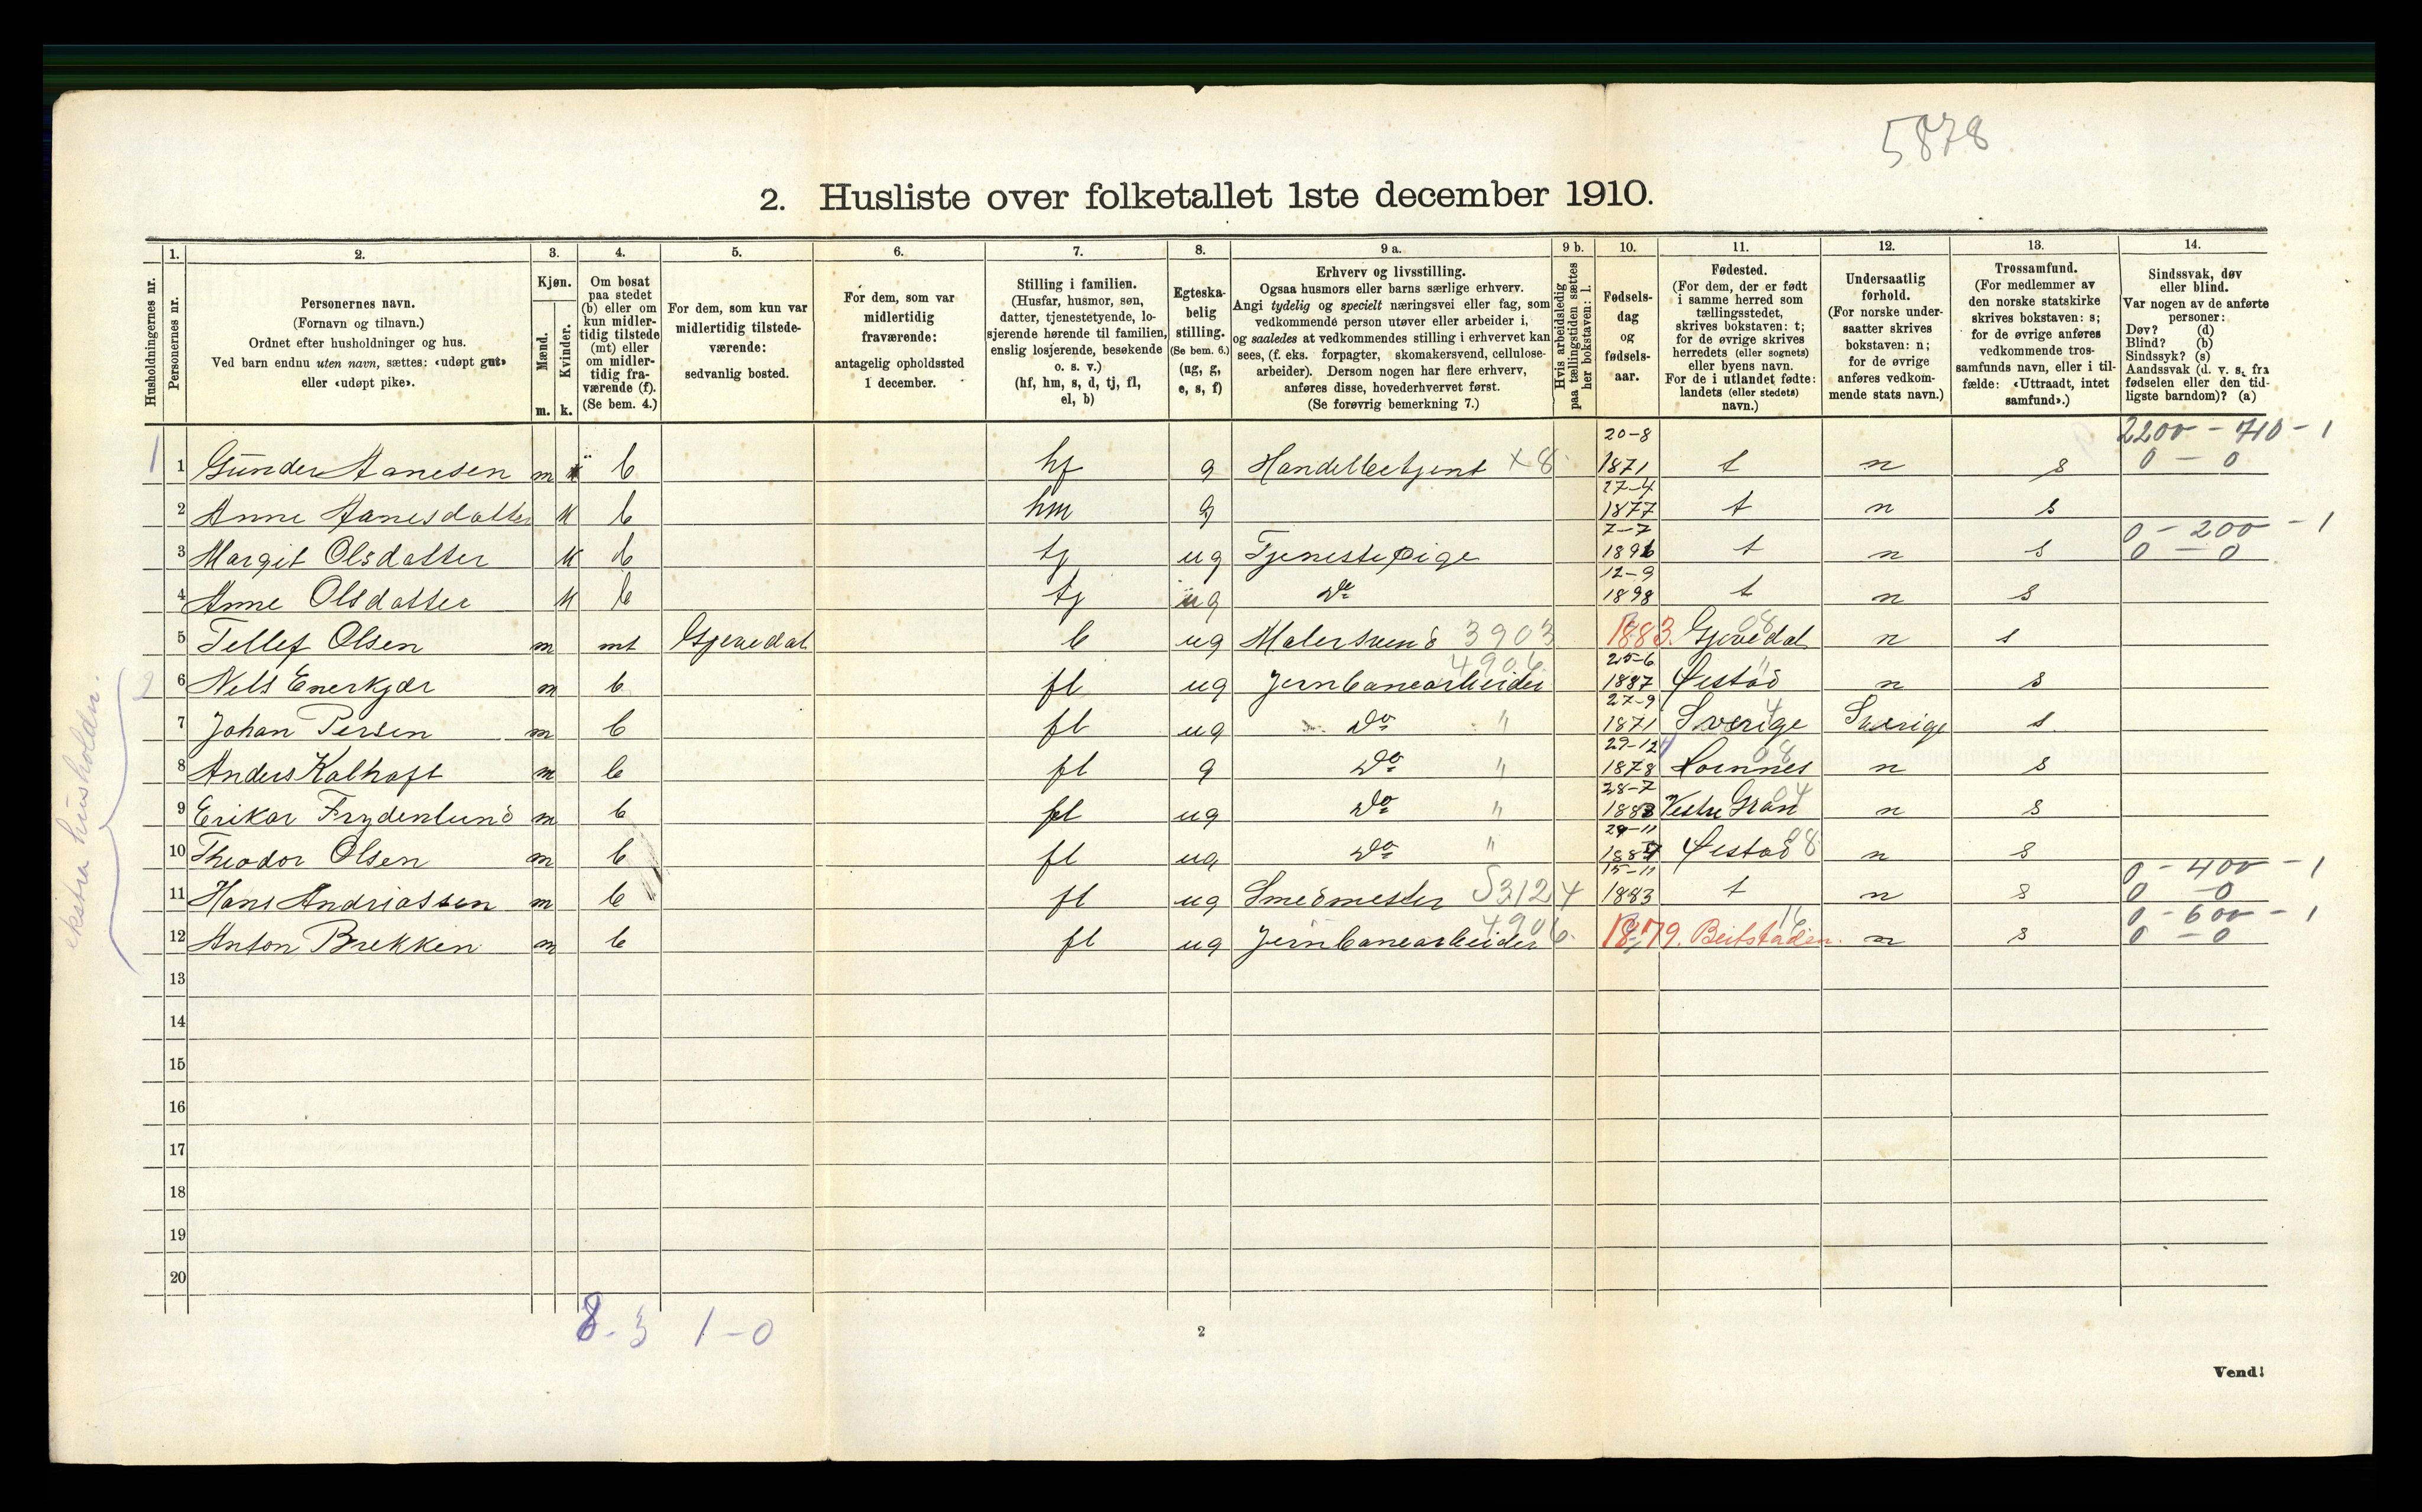 5878
2. Husliste over folketallet 1ste december 1910.
Husholdningernes nr.
1. Personernes nr.
2. Personernes navn.
(Fornavn og tilnavn.)
Ordnet efter husholdninger og hus.
Ved barn endnu uten navn, sættes: «udøpt gut»
eller «udøpt pike».
3. Kjøn.
Mænd. m.
Kvinder. k.
4. Om bosat
paa stedet
(b) eller om
kun midler-
tidig tilstede
(mt) eller
om midler-
tidig fra-
værende (f).
(Se bem. 4.)
5. For dem, som kun var
midlertidig tilstede-
værende:
sedvanlig bosted.
6. For dem, som var
midlertidig
fraværende:
antagelig opholdssted
1 december.
7. Stilling i familien.
(Husfar, husmor, søn,
datter, tjenestetyende, lo-
sjerende hørende til familien,
enslig losjerende, besøkende
o. s. v.)
(hf, hm, s, d, tj, fl,
el, b)
8. Egteska-
belig
stilling.
(Se bem. 6.)
(ug, g,
e, s, f)
9 a. Erhverv og livsstilling.
Ogsaa husmors eller barns særlige erhverv.
Angi tydelig og specielt næringsvei eller fag, som
vedkommende person utøver eller arbeider i,
og saaledes at vedkommendes stilling i erhvervet kan
sees, (f. eks. forpagter, skomakersvend, cellulose-
arbeider). Dersom nogen har flere erhverv,
anføres disse, hovederhvervet først.
(Se forøvrig bemerkning 7.)
9 b. Hvis arbeidsledig
paa tællingstiden sættes
her bokstaven: l.
10. Fødsels-
dag
og
fødsels-
aar.
11. Fødested.
(For dem, der er født
i samme herred som
tællingsstedet,
skrives bokstaven: t;
for de øvrige skrives
herredets (eller sognets)
eller byens navn.
For de i utlandet fødte:
landets (eller stedets)
navn.)
12. Undersaatlig
forhold.
(For norske under-
saatter skrives
bokstaven: n;
for de øvrige
anføres vedkom-
mende stats navn.)
13. Trossamfund.
(For medlemmer av
den norske statskirke
skrives bokstaven: s;
for de øvrige anføres
vedkommende tros-
samfunds navn, eller i til-
fælde: «Uttraadt, intet
samfund».)
14. Sindssvak, døv
eller blind.
Var nogen av de anførte
personer:
Døv? (d)
Blind? (b)
Sindssyk? (s)
Aandssvak (d. v. s. fra
fødselen eller den tid-
ligste barndom)? (a)
1 1 Gunder Aanesen m b hf g Handelbetjent × 8 20-8 1871 t n s 2200 - 710 - 1 0 - 0
2 Anne Aanesdatter k b hm g 27-4 1877 t n s
3 Margit Olsdatter k b tj ug Tjenestepige 7-7 t n s 0 - 200 - 1 0 - 0
4 Anne Olsdatter k b tj ug Do 12-9 1898 t n s
5 Tellef Olsen m mt Gjevedal b ug Malersvend 3903 1883. Gjøvedal 08 n s
2 6 Nels Enerkjær m b fl ug Jernbanearbeider 4906 25-6 1887 Øestad " n s
7 Johan Persen m b fl ug Do " 27-9 1871 Sverige 4 Sverige s
8 Anders Kalhaft m b fl g Do " 29-12 1878 08 n s
9 Erikar Frydenlund m b fl ug Do " 28-7 Vestre Gran 04 n s
10 Theodor Olsen m b fl ug Do " 29-11 Øestad 08 n s
11 Hans Andriassen m b fl ug Smedmester 53124 15-11 1883 t n s 0 - 400 - 1 0 - 0
12 Anton Brekken m b fl ug Jernbanearbeider 4906. 1879. Beitstaden. 16 n s 0 - 600 - 1 0 - 0
ekstra husholdn.
13
14
15
16
17
18
19
20
8-3 1-0
2
Vend!